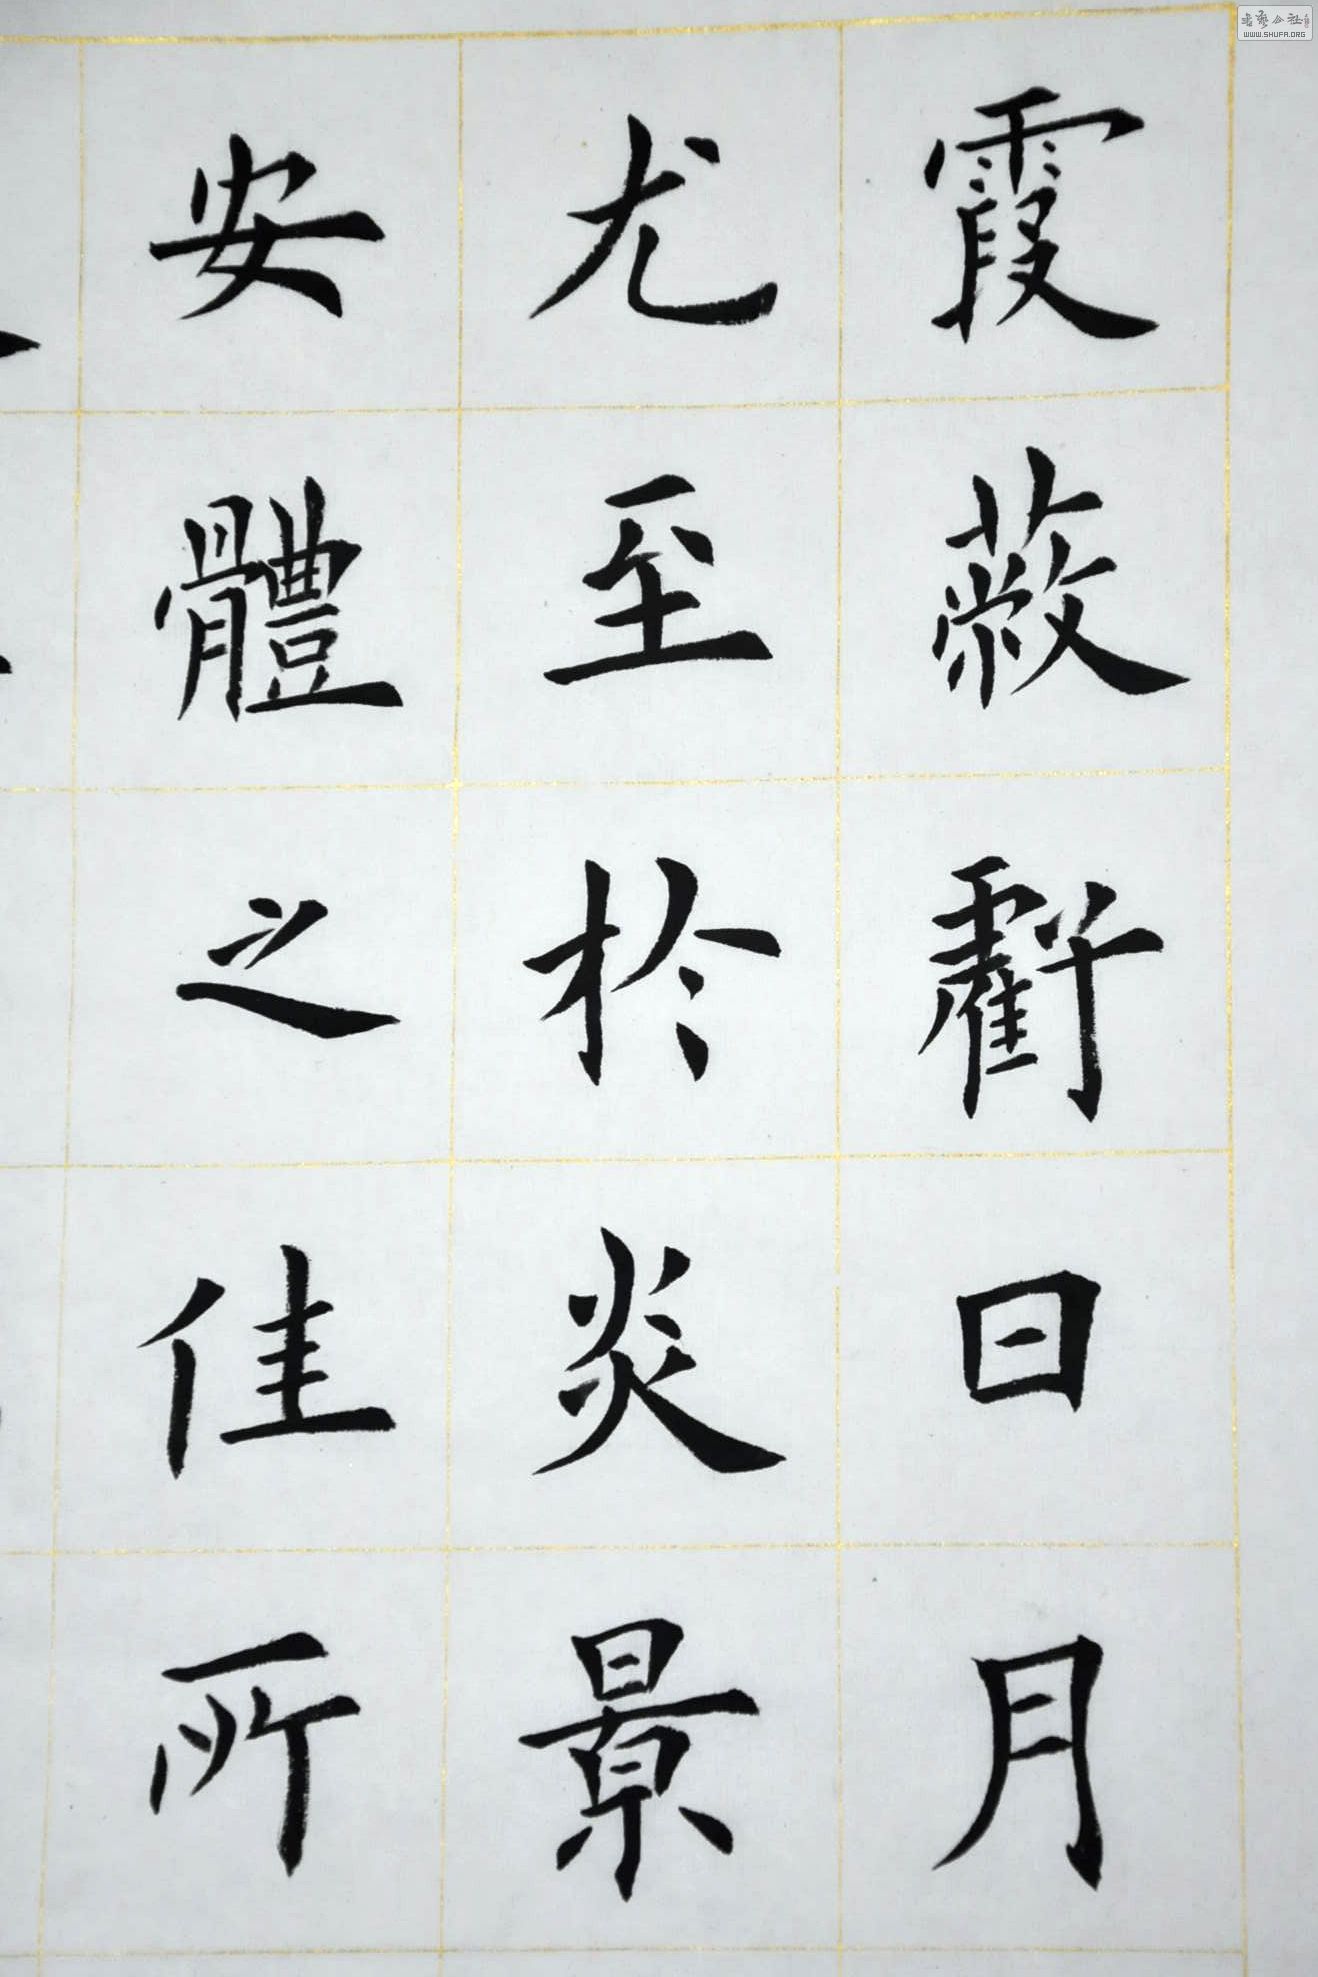 霞蔽虧日月
尤至於炎景
安體之佳所
WWW.SHUFA.ORG